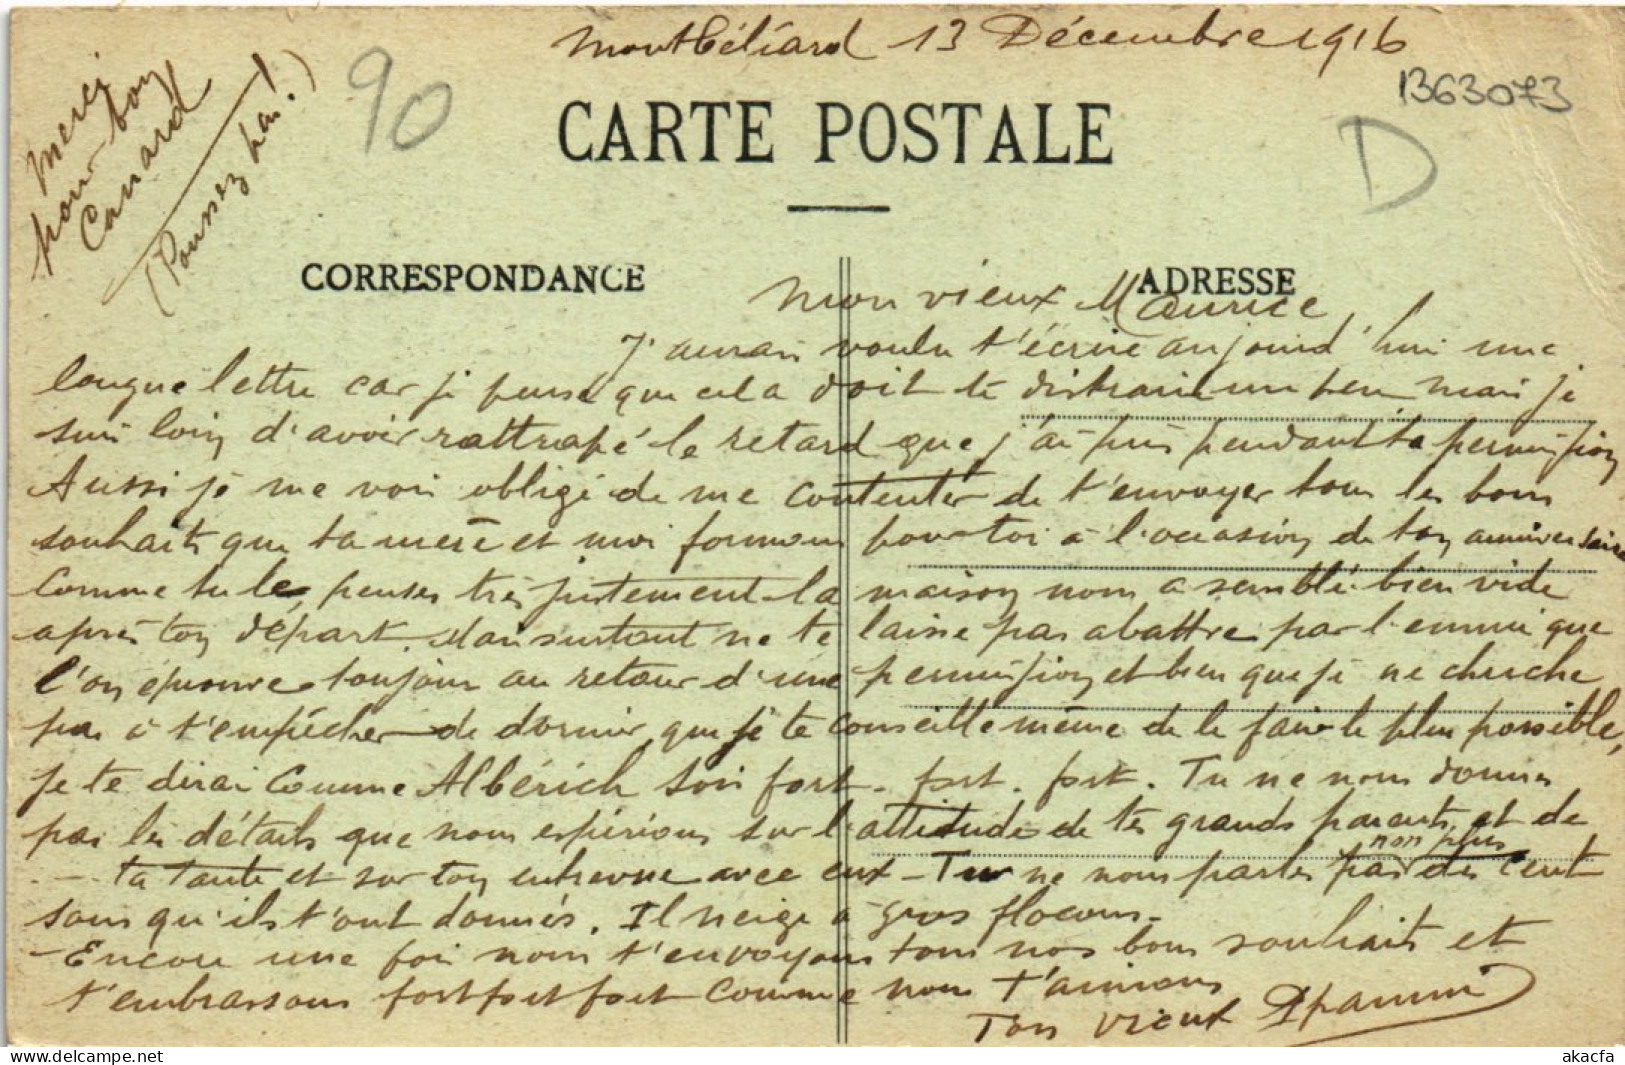 Montbéliard 13 Décembre 1916
1363073
90
D
Merci
pour ton
Canard
(Poussez pas!)
CARTE POSTALE
CORRESPONDANCE
ADRESSE
Mon vieux Maurice,
J'aurais voulu t'écrire aujourd'hui une
longue lettre car je pense que cela doit te distraire un peu mais je
suis loin d'avoir rattrapé le retard que j'ai pris pendant ta permission
Aussi je me vois obligé de me contenter de t'envoyer tous les bons
souhaits que ta mère et moi formons pour toi à l'occasion de ton anniversaire
Comme tu le penses très justement la maison nous a semblé bien vide
après ton départ. Mais surtout ne te laisse pas abattre par l'ennui que
l'on éprouve toujours au retour d'une permission et bien que je ne cherche
pas à t'empêcher de dormir, que je te conseille même de le faire le plus possible,
je te dirai comme Albérich sois fort. fort. fort. Tu ne nous donnes
pas les détails que nous espérions sur l'attitude de tes grands parents et de
ta tante et sur ton entrevue avec eux - Tu ne nous parles pas non plus des cent
sous qu'ils t'ont donnés. Il neige à gros flocons.
- Encore une fois nous t'envoyons tous nos bons souhaits et
t'embrassons fort fort fort comme nous t'aimons
Ton vieux
akacfa
www.delcampe.net